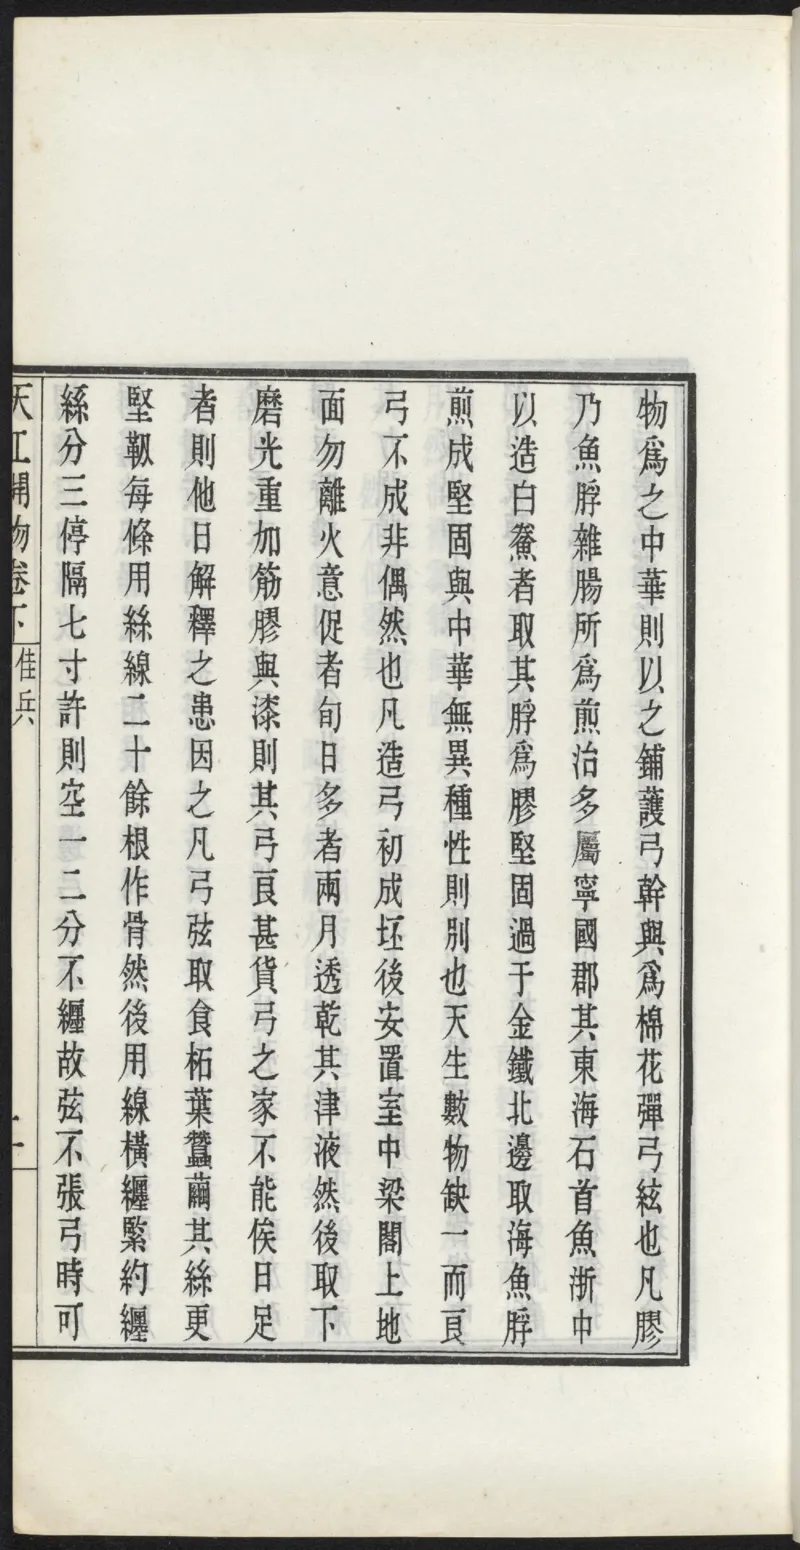 物爲之中華則以之鋪護弓幹與爲棉花彈弓絃也凡膠
乃魚脬雜腸所爲煎治多屬寧國郡其東海石首魚浙中
以造白鯗者取其脬爲膠堅固過于金鐵北邊取海魚脬
煎成堅固與中華無異種性則別也天生數物缺一而良
弓不成非偶然也凡造弓初成坯後安置室中梁閣上地
面勿離火意促者旬日多者兩月透乾其津液然後取下
磨光重加筋膠與漆則其弓良甚貨弓之家不能俟日足
者則他日解釋之患因之凡弓弦取食柘葉蠶繭其絲更
堅靱每條用絲線二十餘根作骨然後用線橫纏緊約纏
絲分三停隔七寸許則空一二分不纏故弦不張弓時可
天工開物卷下 佳兵